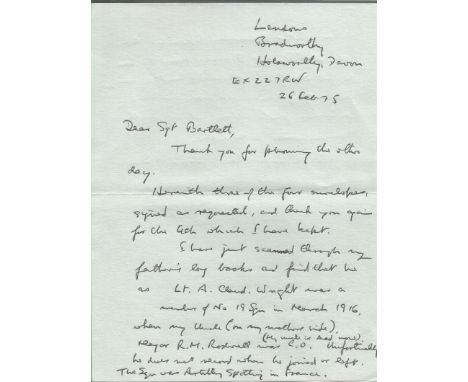 Landons
Bradworthy
Holsworthy, Devon
EX22 7RW
26 Feb 75
Dear Sgt Bartlett,
Thank you for phoning the other
day.
Herewith three of the four envelopes,
signed as requested, and thank you again
for the 4th which I have kept.
I have just scanned through my
father's log books and find that he
as Lt. A. Claud. Wright was a
member of No 19 Sqn in March 1916,
when my Uncle (on my mother's side),
(My uncle is dead now).
Major R.M. Rodwell was C.O. Unfortunately
he does not record when he joined or left.
The Sqn was Artillery Spotting in France.